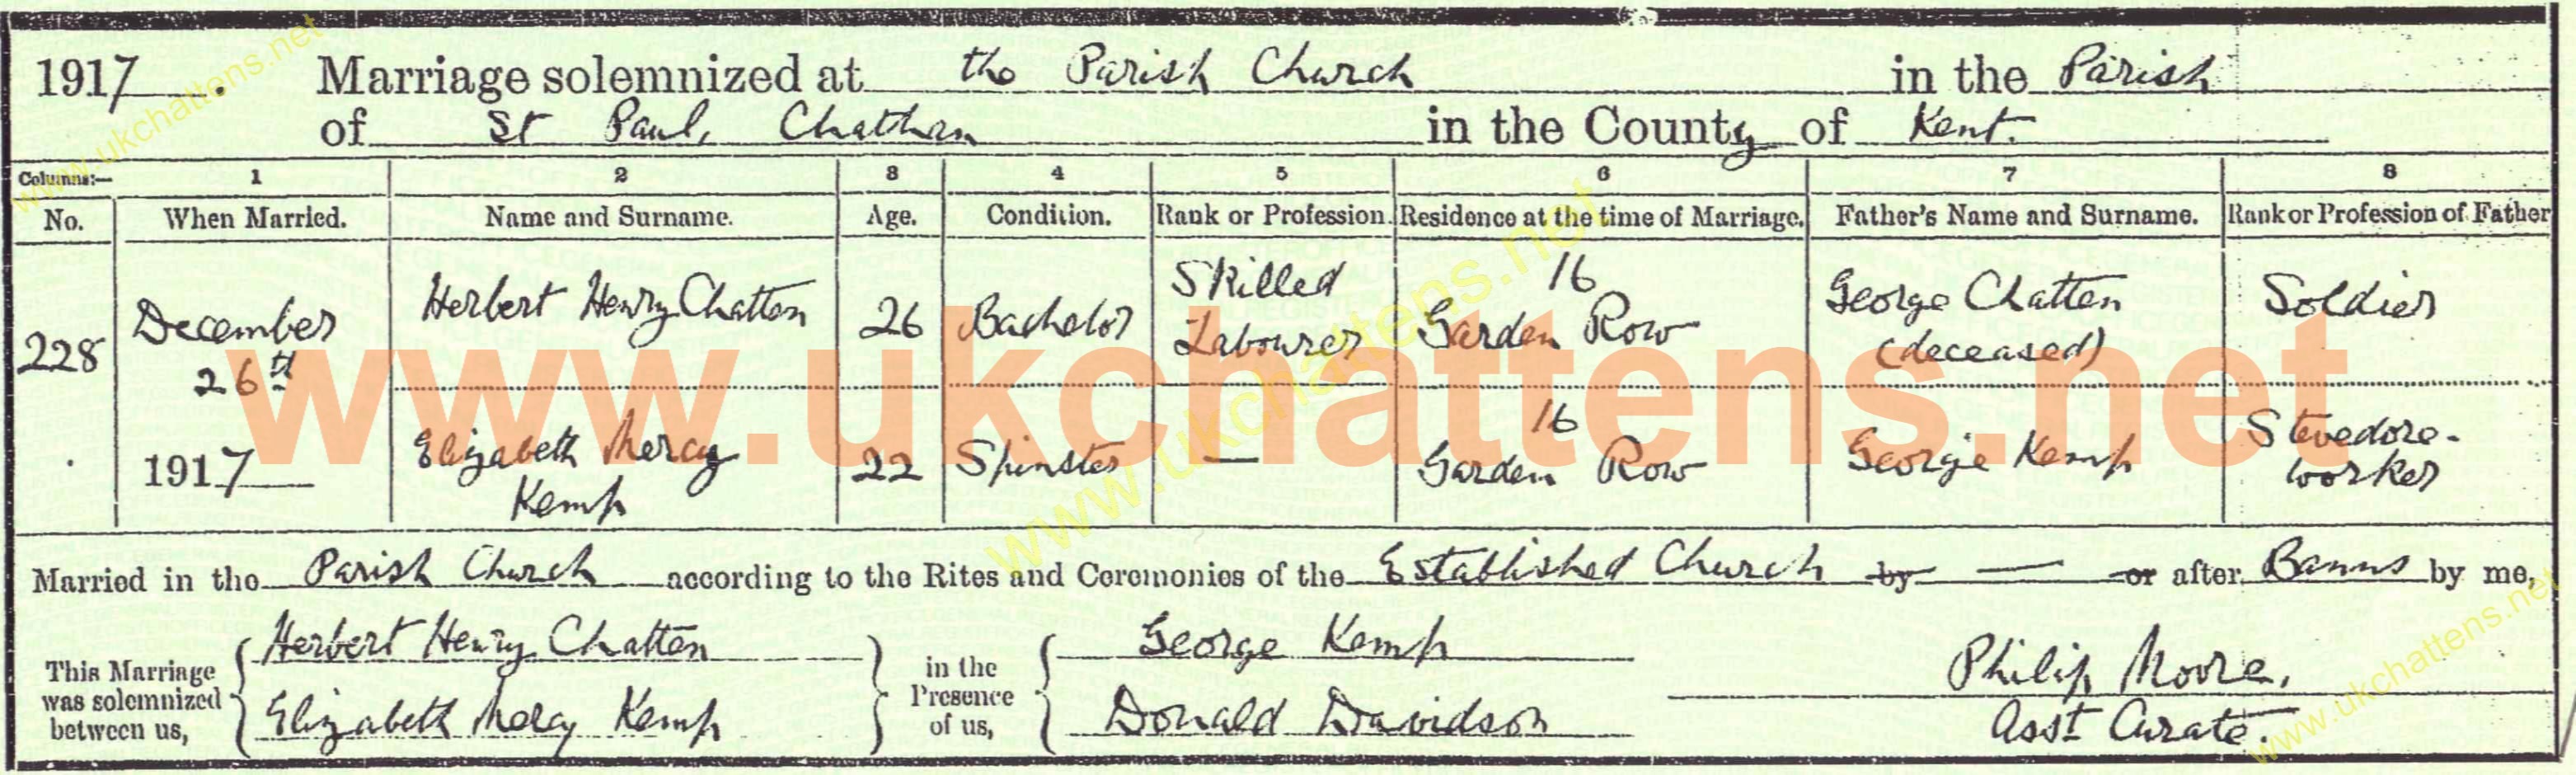 1917. Marriage solemnized at the Parish Church in the Parish
of St Paul, Chatham in the County of Kent.
Columns:— 1 2 3 4 5 6 7 8
No. When Married. Name and Surname. Age. Condition. Rank or Profession. Residence at the time of Marriage. Father's Name and Surname. Rank or Profession of Father
228 December 26th 1917 Herbert Henry Chatten 26 Bachelor Skilled Labourer 16 Garden Row George Chatten (deceased) Soldier
Elizabeth Mercy Kemp 22 Spinster — 16 Garden Row George Kemp Stevedore-worker
Married in the Parish Church according to the Rites and Ceremonies of the Established Church by — or after Banns by me,
This Marriage was solemnized between us, Herbert Henry Chatten Elizabeth Mercy Kemp in the Presence of us, George Kemp Donald Davidson Philip Moore, Asst Curate.
www.ukchattens.net
www.ukchattens.net
www.ukchattens.net
www.ukchattens.net